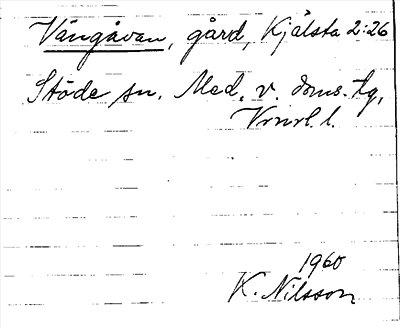 Vängåvan, gård, Kjälsta 2:26
Stöde sn. Med. v. doms. tg,
Vrnrl. l.
1960
K. Nilsson